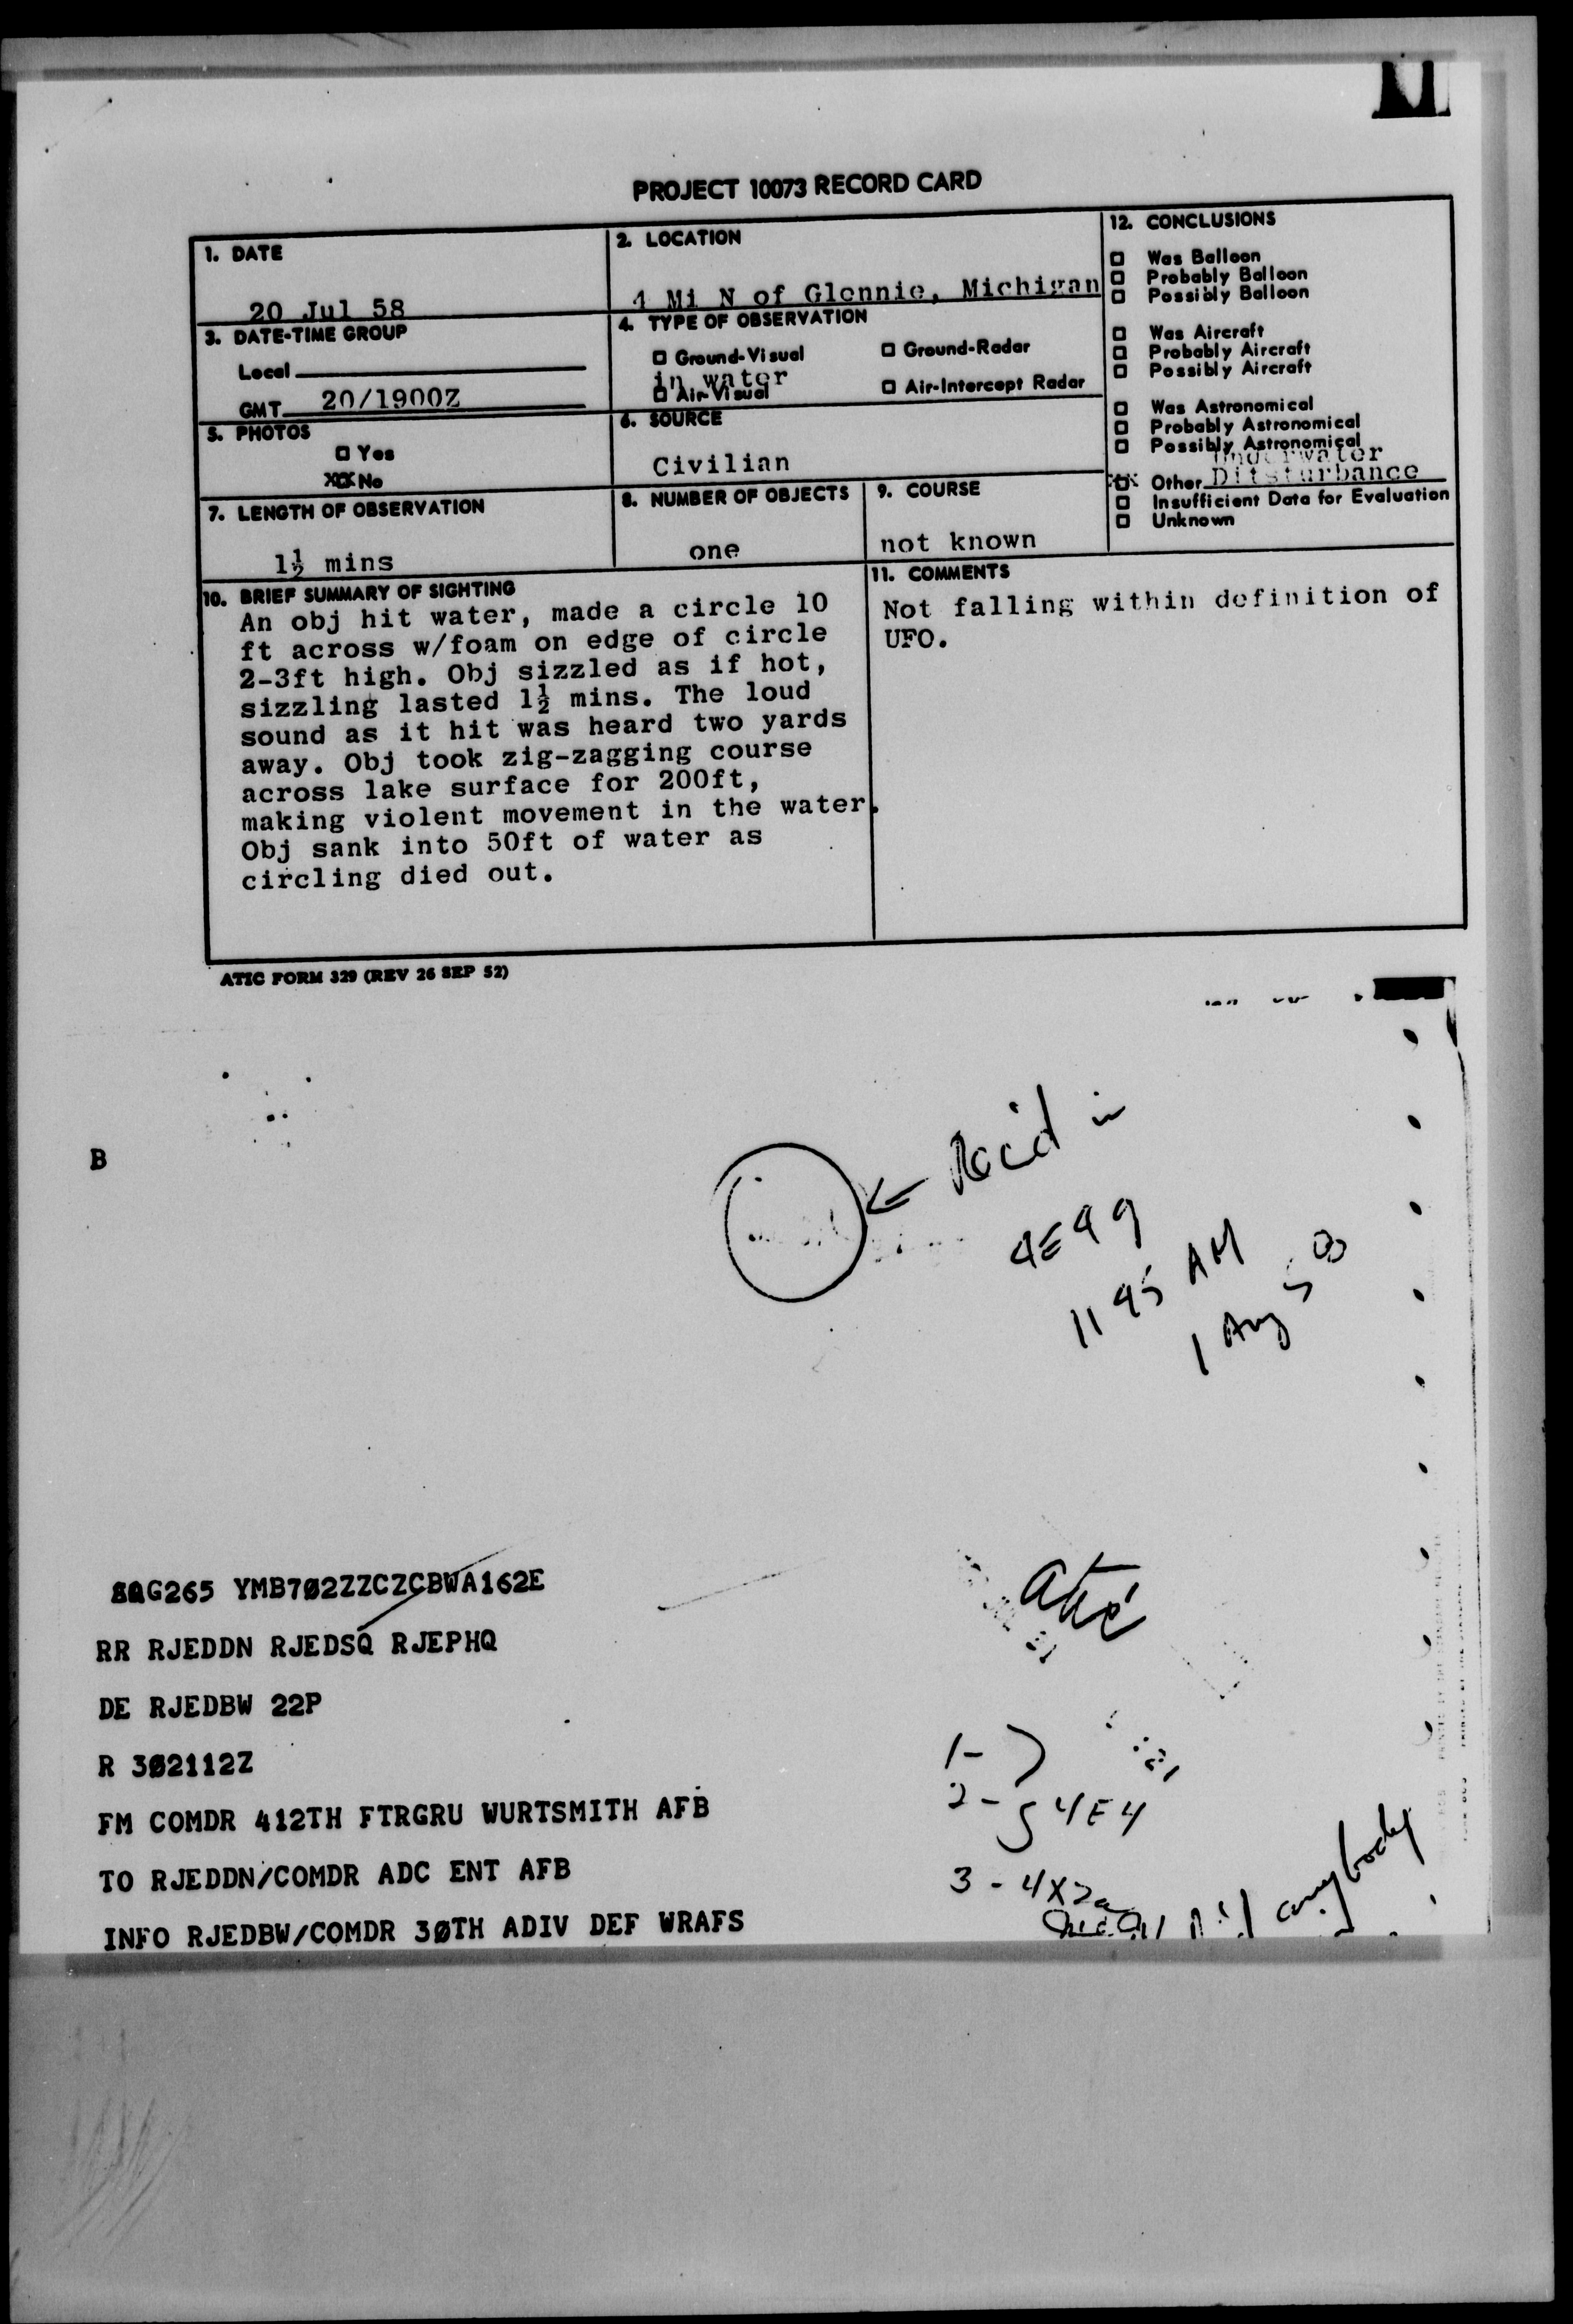 PROJECT 10073 RECORD CARD
1. DATE
20 Jul 58
2. LOCATION
4 Mi N of Glennie, Michigan
12. CONCLUSIONS
□ Was Balloon
□ Probably Balloon
□ Possibly Balloon
□ Was Aircraft
□ Probably Aircraft
□ Possibly Aircraft
□ Was Astronomical
□ Probably Astronomical
□ Possibly Astronomical
Underwater
□ Other Ditsturbance
□ Insufficient Data for Evaluation
□ Unknown
3. DATE-TIME GROUP
Local
GMT 20/1900Z
4. TYPE OF OBSERVATION
□ Ground-Visual □ Ground-Radar
in water
□ Air-Visual □ Air-Intercept Radar
5. PHOTOS
□ Yes
XX No
6. SOURCE
Civilian
7. LENGTH OF OBSERVATION
1½ mins
8. NUMBER OF OBJECTS
one
9. COURSE
not known
10. BRIEF SUMMARY OF SIGHTING
An obj hit water, made a circle 10
ft across w/foam on edge of circle
2-3ft high. Obj sizzled as if hot,
sizzling lasted 1½ mins. The loud
sound as it hit was heard two yards
away. Obj took zig-zagging course
across lake surface for 200ft,
making violent movement in the water.
Obj sank into 50ft of water as
circling died out.
11. COMMENTS
Not falling within definition of
UFO.
ATIC FORM 329 (REV 26 SEP 52)
B
← Rec'd in
4E4g
1145 AM
1 Aug 58
SQG265 YMB7Ø2ZZCZCBWA162E
RR RJEDDN RJEDSQ RJEPHQ
DE RJEDBW 22P
R 3Ø2112Z
FM COMDR 412TH FTRGRU WURTSMITH AFB
TO RJEDDN/COMDR ADC ENT AFB
INFO RJEDBW/COMDR 3ØTH ADIV DEF WRAFS
atic
1-
2- 4E4
3 - 4X2a
anybody